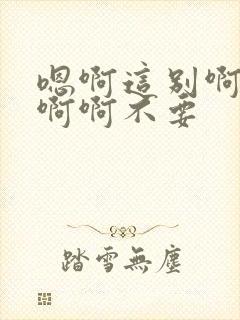 嗯啊這别啊
啊啊不要
踏雪無塵